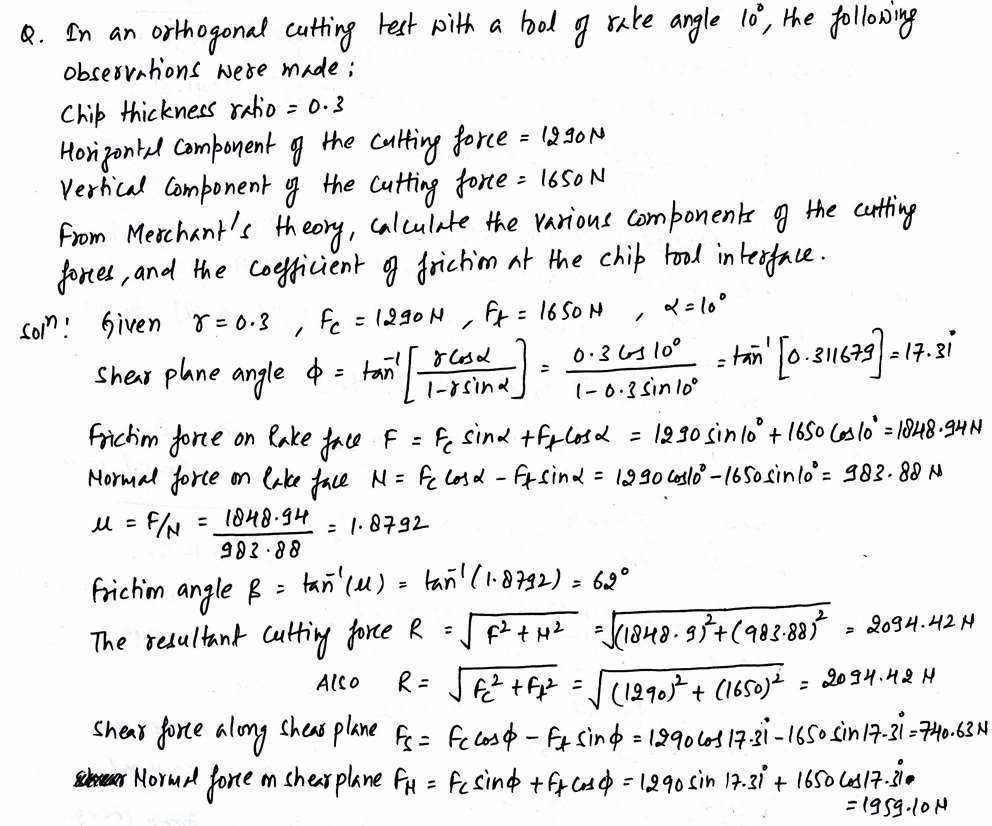 Q. In an orthogonal cutting test with a tool of rake angle 10°, the following
observations were made;
Chip thickness ratio = 0.3
Horizontal Component of the cutting force = 1290N
Vertical Component of the cutting force = 1650N
From Merchant's theory, calculate the various components of the cutting
forces, and the coefficient of friction at the chip tool interface.
Solⁿ: Given r = 0.3 , Fc = 1290N , Ft = 1650N , α = 10°
Shear plane angle ϕ = tan⁻¹[r cosα / 1 - r sinα] = 0.3 cos 10° / 1 - 0.3 sin 10° = tan⁻¹[0.311679] = 17.31°
Friction force on Rake face F = Fc sinα + Ft cosα = 1290 sin10° + 1650 cos10° = 1848.94N
Normal force on Rake face N = Fc cosα - Ft sinα = 1290 cos10° - 1650 sin10° = 983.88 N
μ = F/N = 1848.94 / 983.88 = 1.8792
friction angle β = tan⁻¹(μ) = tan⁻¹(1.8792) = 62°
The resultant Cutting force R = √(F² + N²) = √((1848.9)² + (983.88)²) = 2094.42 N
Also R = √(Fc² + Ft²) = √((1290)² + (1650)²) = 2094.42 N
Shear force along shear plane Fs = Fc cosϕ - Ft sinϕ = 1290 cos 17.31° - 1650 sin 17.31° = 740.63N
Normal force on shear plane FN = Fc sinϕ + Ft cosϕ = 1290 sin 17.31° + 1650 cos 17.31°
= 1959.10N